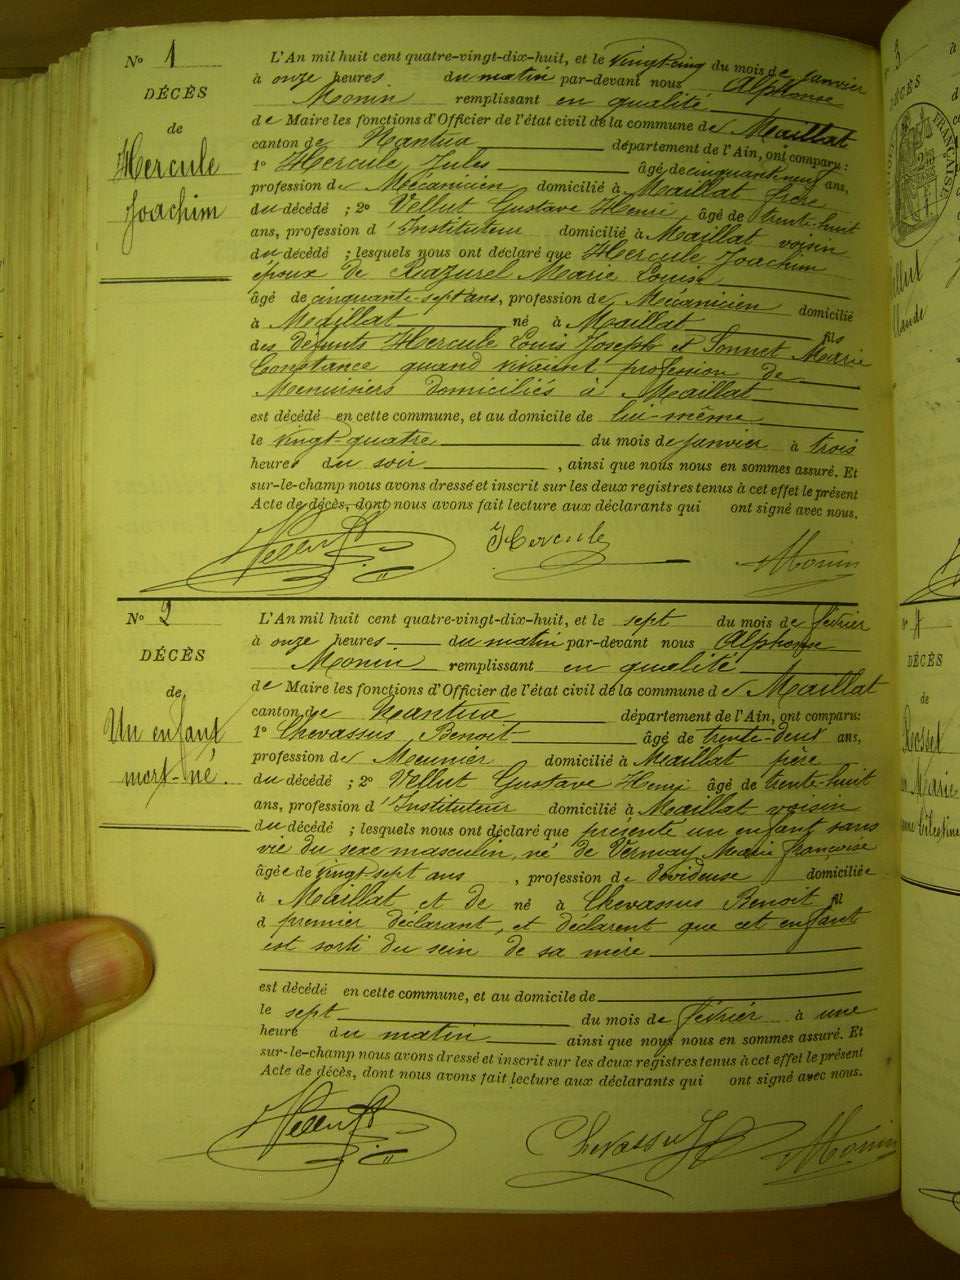 No 1
DÉCÈS
de
Hercule
Joachim
L'An mil huit cent quatre-vingt-dix-huit, et le vingt-cinq du mois de janvier
à onze heures du matin par-devant nous Alphonse
Monin remplissant en qualité
de Maire les fonctions d'Officier de l'état civil de la commune de Maillat
canton de Nantua département de l'Ain, ont comparu:
1o Hercule Jules âgé de cinquante neuf ans,
profession de Mécanicien domicilié à Maillat frère
du décédé ; 2o Vellut Gustave Henri, âgé de trente-huit
ans, profession d'Instituteur domicilié à Maillat voisin
du décédé ; lesquels nous ont déclaré que Hercule Joachim
époux de Razurel Marie Louise
âgé de cinquante-sept ans, profession de Mécanicien domicilié
à Maillat né à Maillat fils
des défunts Hercule Louis Joseph et Sonnet Marie
Constance quand vivaient profession de
Menuisiers domiciliés à Maillat
est décédé en cette commune, et au domicile de lui-même
le vingt-quatre du mois de janvier à trois
heures du soir , ainsi que nous nous en sommes assuré. Et
sur-le-champ nous avons dressé et inscrit sur les deux registres tenus à cet effet le présent
Acte de décès, dont nous avons fait lecture aux déclarants qui ont signé avec nous.
Vellut Hercule Monin
No 2
DÉCÈS
de
Un enfant
mort-né.
L'An mil huit cent quatre-vingt-dix-huit, et le sept du mois de février
à onze heures du matin par-devant nous Alphonse
Monin remplissant en qualité
de Maire les fonctions d'Officier de l'état civil de la commune de Maillat
canton de Nantua département de l'Ain, ont comparu:
1o Chevassus Benoit âgé de trente-deux ans,
profession de Meunier domicilié à Maillat père
du décédé ; 2o Vellut Gustave Henri âgé de trente-huit
ans, profession d'Instituteur domicilié à Maillat voisin
du décédé ; lesquels nous ont déclaré que présente un enfant sans
vie du sexe masculin, né de Vernay Marie françoise
âgée de vingt sept ans , profession de dévideuse domiciliée
à Maillat et de né à Chevassus Benoit fil
d premier déclarant, et déclarent que cet enfant
est sorti du sein de sa mère
est décédé en cette commune, et au domicile de
le sept du mois de février à une
heure du matin ainsi que nous nous en sommes assuré. Et
sur-le-champ nous avons dressé et inscrit sur les deux registres tenus à cet effet le présent
Acte de décès, dont nous avons fait lecture aux déclarants qui ont signé avec nous.
Vellut Chevassus Monin
3
FRANÇAISE
No 4
DÉCÈS
de
Marie